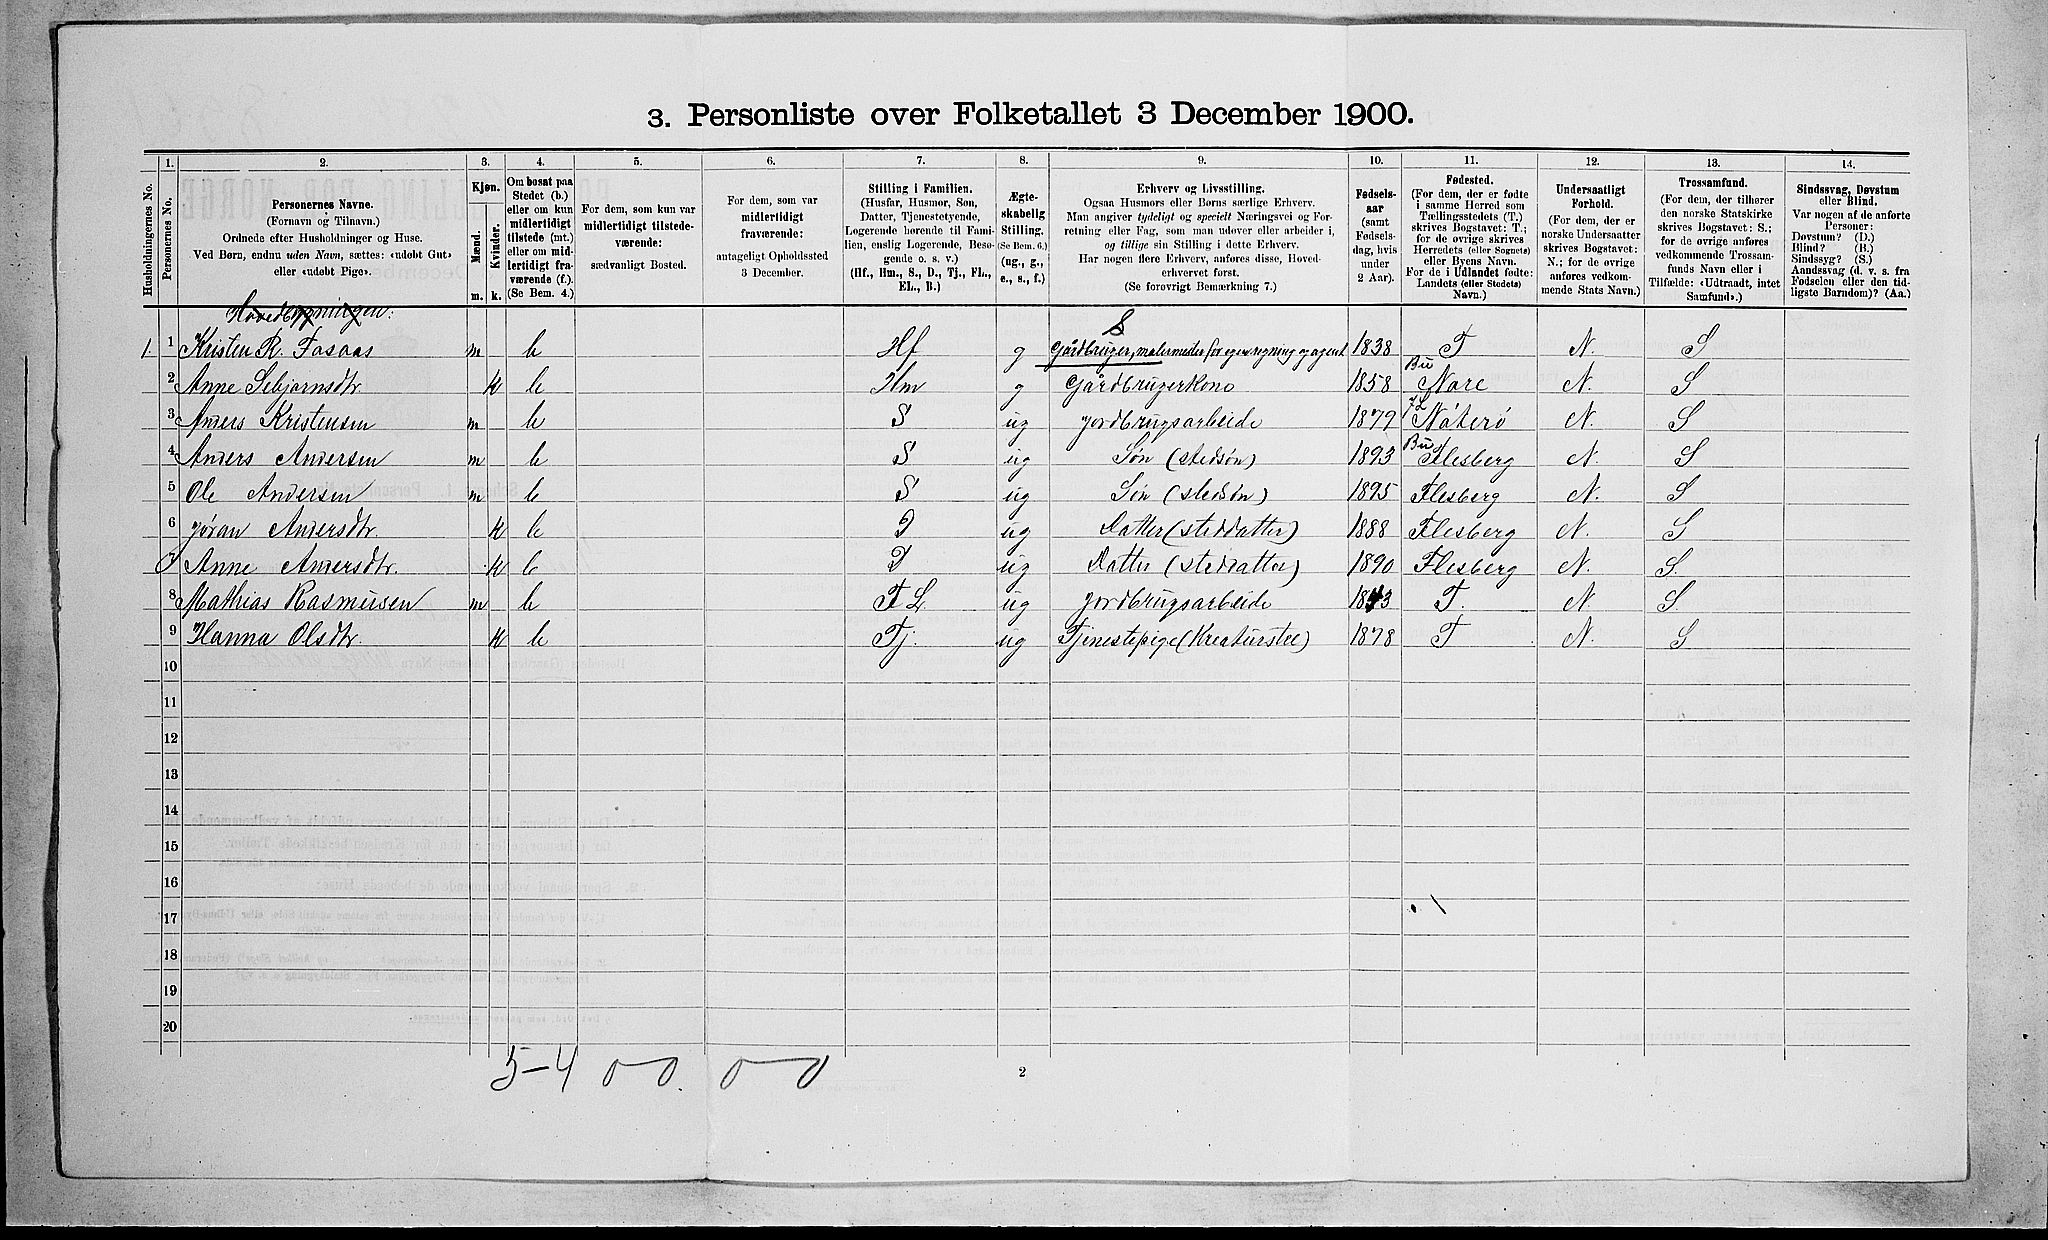 3. Personliste over Folketallet 3 December 1900.
1. 2. 3. 4. 5. 6. 7. 8. 9. 10. 11. 12. 13. 14.
Husholdningernes No.
Personernes No.
Personernes Navne.
(Fornavn og Tilnavn.)
Ordnede efter Husholdninger og Huse.
Ved Børn, endnu uden Navn, sættes: «udøbt Gut»
eller «udøbt Pige».
Kjøn.
Mænd.
Kvinder.
m. k.
Om bosat paa
Stedet (b.)
eller om kun
midlertidigt
tilstede (mt.)
eller om mid-
lertidigt fra-
værende (f.).
(Se Bem. 4.)
For dem, som kun var
midlertidigt tilstede-
værende:
sædvanligt Bosted.
For dem, som var
midlertidigt
fraværende:
antageligt Opholdssted
3 December.
Stilling i Familien.
(Husfar, Husmor, Søn,
Datter, Tjenestetyende,
Logerende hørende til Fami-
lien, enslig Logerende, Besø-
gende o. s. v.)
(Hf., Hm., S., D., Tj., FL.,
EL., B.)
Ægte-
skabelig
Stilling.
(Se Bem. 6.)
(ug., g.,
e., s., f.)
Erhverv og Livsstilling.
Ogsaa Husmors eller Børns særlige Erhverv.
Man angiver tydeligt og specielt Næringsvei og For-
retning eller Fag, som man udøver eller arbeider i,
og tillige sin Stilling i dette Erhverv.
Har nogen flere Erhverv, anføres disse, Hoved-
erhvervet først.
(Se forøvrigt Bemærkning 7.)
Fødsels-
aar
(samt
Fødsels-
dag, hvis
under
2 Aar).
Fødested.
(For dem, der er fødte
i samme Herred som
Tællingsstedets (T.)
skrives Bogstavet: T.;
for de øvrige skrives
Herredets (eller Sognets)
eller Byens Navn.
For de i Udlandet fødte:
Landets (eller Stedets)
Navn.)
Undersaatligt
Forhold.
(For dem, der er
norske Undersaatter
skrives Bogstavet:
N.; for de øvrige
anføres vedkom-
mende Stats Navn.)
Trossamfund.
(For dem, der tilhører
den norske Statskirke
skrives Bogstavet: S.;
for de øvrige anføres
vedkommende Trossam-
funds Navn eller i
Tilfælde: «Udtraadt, intet
Samfund».)
Sindssvag, Døvstum
eller Blind.
Var nogen af de anførte
Personer:
Døvstum? (D.)
Blind? (B.)
Sindssyg? (S.)
Aandssvag (d. v. s. fra
Fødselen eller den tid-
ligste Barndom)? (Aa.)
Hovedbygningen:
S
1. 1 Kristen R. Fosaas m b Hf g Gårdbruger, malermester for egen regning og agent 1838 T N. S
2 Anne Sebjørnsdtr. k b Hm g Gårdbrugerkone 1858 Bu Nore N. S
3 Anders Kristensen m b S ug jordbrugsarbeide 1879 Nøterø N. S
4 Anders Andersen m b S ug Søn (stedsøn) 1893 Bu Flesberg N. S
5 Ole Andersen m b S ug Søn (stedsøn) 1895 Flesberg N. S
6 Jøran Andersdtr. k b D ug Datter (steddatter) 1888 Flesberg N. S
7 Anne Andersdtr. k b D ug Datter (steddatter) 1890 Flesberg N. S.
8 Mathias Rasmusen m b F L. ug jordbrugsarbeide 1843 T. N. S
9 Hanna Olsdtr. k b Tj. ug Tjenestepige (Kreaturstel) 1878 T N. S
10
11
12
13
14
15
16
17
18
19
20
5-4 0-0. 0-0
2